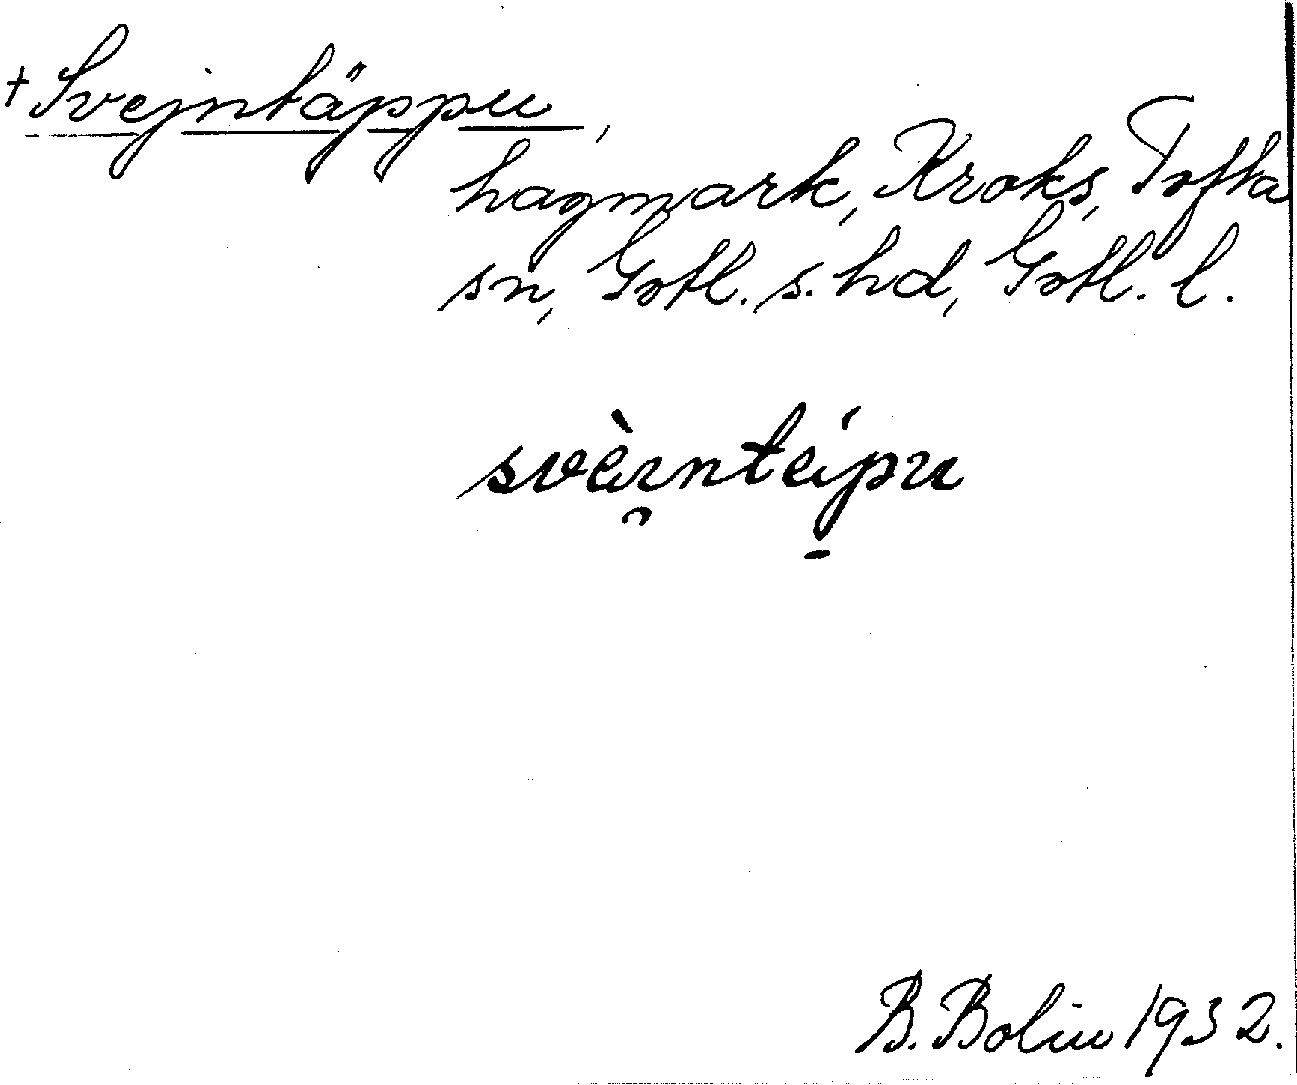 + Svejntäppu,
hagmark, Kroks, Tofta
sn, Gotl. s. hd, Gotl. l.
svèi̯ntép̱u
B. Bolin 1932.